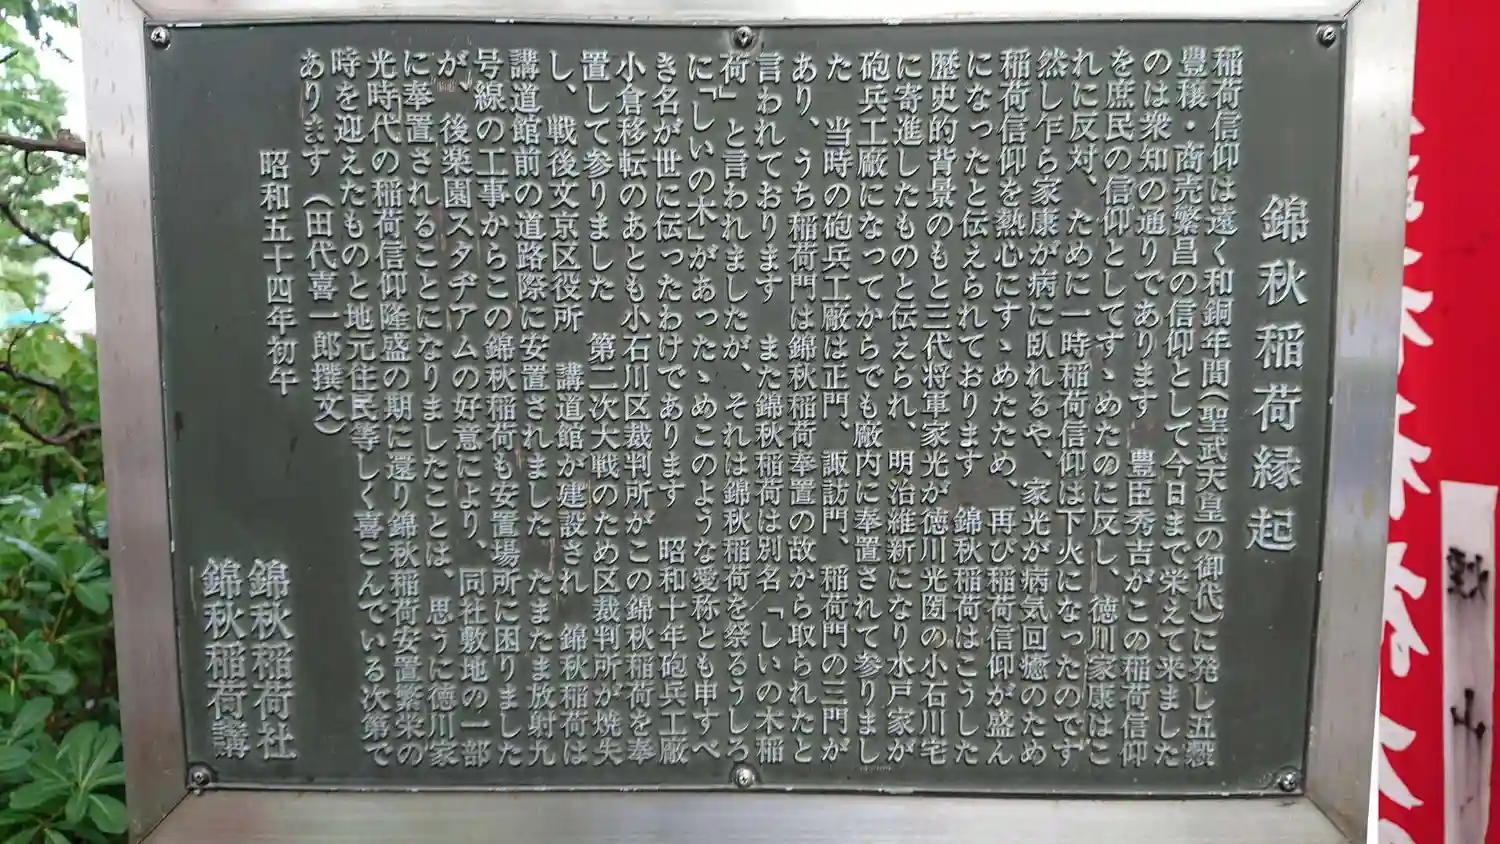 錦秋稲荷縁起
稲荷信仰は遠く和銅年間(聖武天皇の御代)に発し五穀
豊穣・商売繁昌の信仰として今日まで栄えて来ました
のは衆知の通りであります 豊臣秀吉がこの稲荷信仰
を庶民の信仰としてすゝめたのに反し、徳川家康はこ
れに反対、ために一時稲荷信仰は下火になったのです
然し乍ら家康が病に臥れるや、家光が病気回癒のため
稲荷信仰を熱心にすゝめたため、再び稲荷信仰が盛ん
になったと伝えられております 錦秋稲荷はこうした
歴史的背景のもと三代将軍家光が徳川光圀の小石川宅
に寄進したものと伝えられ、明治維新になり水戸家が
砲兵工廠になってからでも廠内に奉置されて参りまし
た 当時の砲兵工廠は正門、諏訪門、稲荷門の三門が
あり、うち稲荷門は錦秋稲荷奉置の故から取られたと
言われております また錦秋稲荷は別名「しいの木稲
荷」と言われましたが、それは錦秋稲荷を祭るうしろ
に「しいの木」があったゝめこのような愛称とも申すべ
き名が世に伝ったわけであります 昭和十年砲兵工廠
小倉移転のあとも小石川区裁判所がこの錦秋稲荷を奉
置して参りました 第二次大戦のため区裁判所が焼失
し、戦後文京区役所 講道館が建設され 錦秋稲荷は
講道館前の道路際に安置されました たまたま放射九
号線の工事からこの錦秋稲荷も安置場所に困りました
が、後楽園スタヂアムの好意により、同社敷地の一部
に奉置されることになりましたことは、思うに徳川家
光時代の稲荷信仰隆盛の期に還り錦秋稲荷安置繁栄の
時を迎えたものと地元住民等しく喜こんでいる次第で
あります (田代喜一郎撰文)
昭和五十四年初午
錦秋稲荷社
錦秋稲荷講